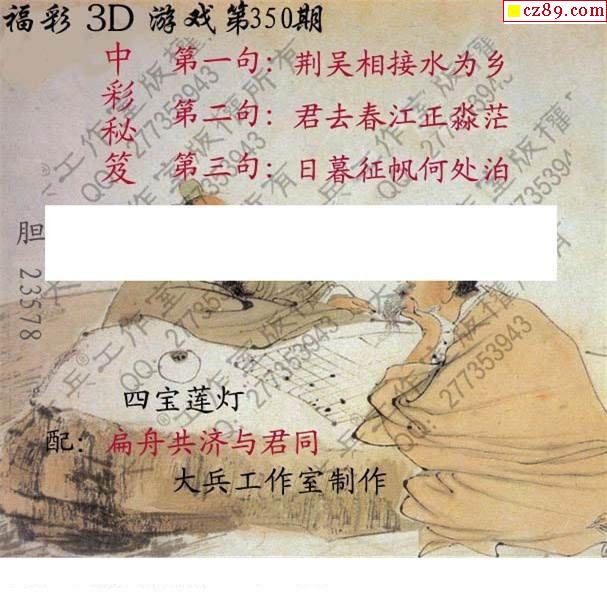 福彩 3D 游戏第350期
cz89.com
中彩秘笈
第一句：荆吴相接水为乡
第二句：君去春江正淼茫
第三句：日暮征帆何处泊
胆
23578
四宝莲灯
配：扁舟共济与君同
大兵工作室制作
大兵®工作室版权所有
QQ：277353943